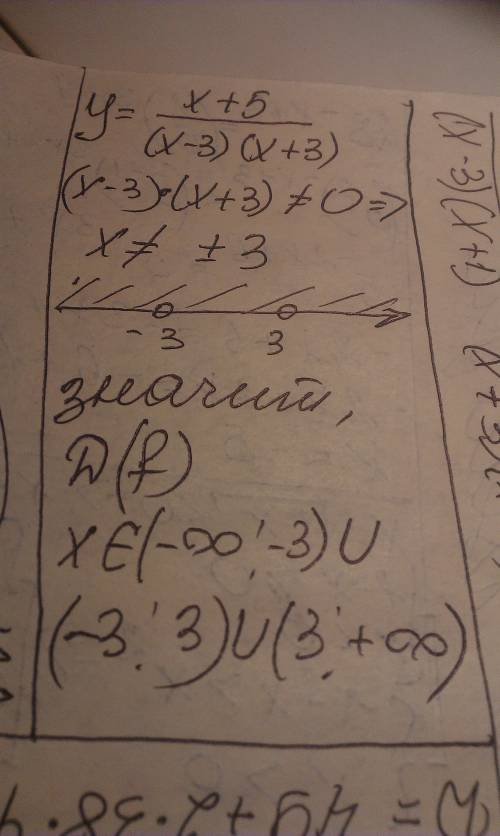 y = x+5
(x-3)(x+3)
(x-3)·(x+3) ≠ 0 =>
x ≠ ± 3
-3 3
значит,
D(f)
x∈(-∞;-3)∪
(-3;3)∪(3;+∞)
(x-3)(x+1)